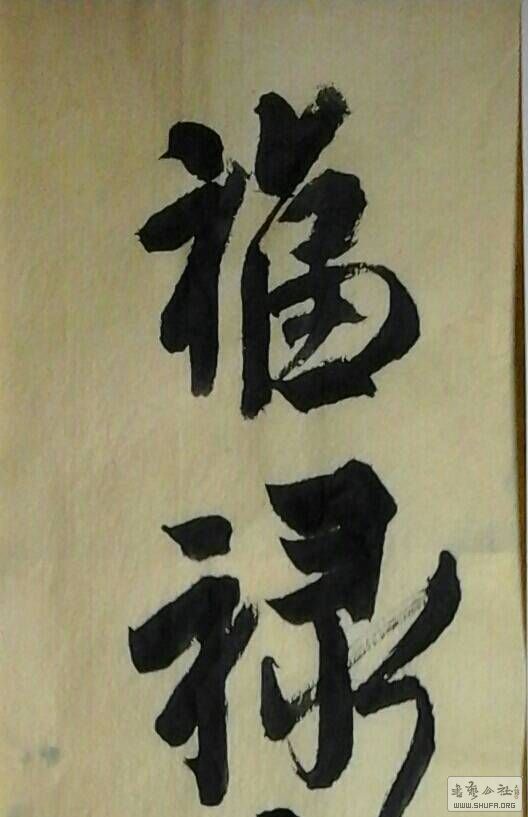 福禄
书艺公社
WWW.SHUFA.ORG